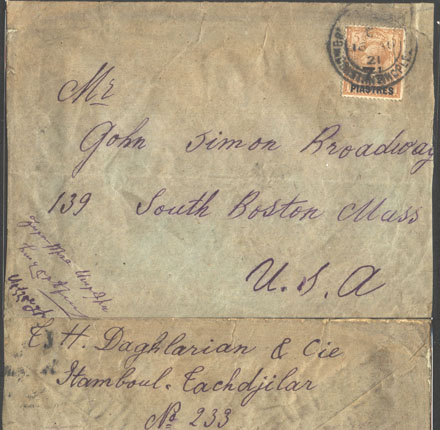 PIASTRES
21
Mr
John Simon Broadway
139 South Boston Mass
U. S. A
H. Daghlarian & Cie
Stamboul. Tachdjilar
No 233